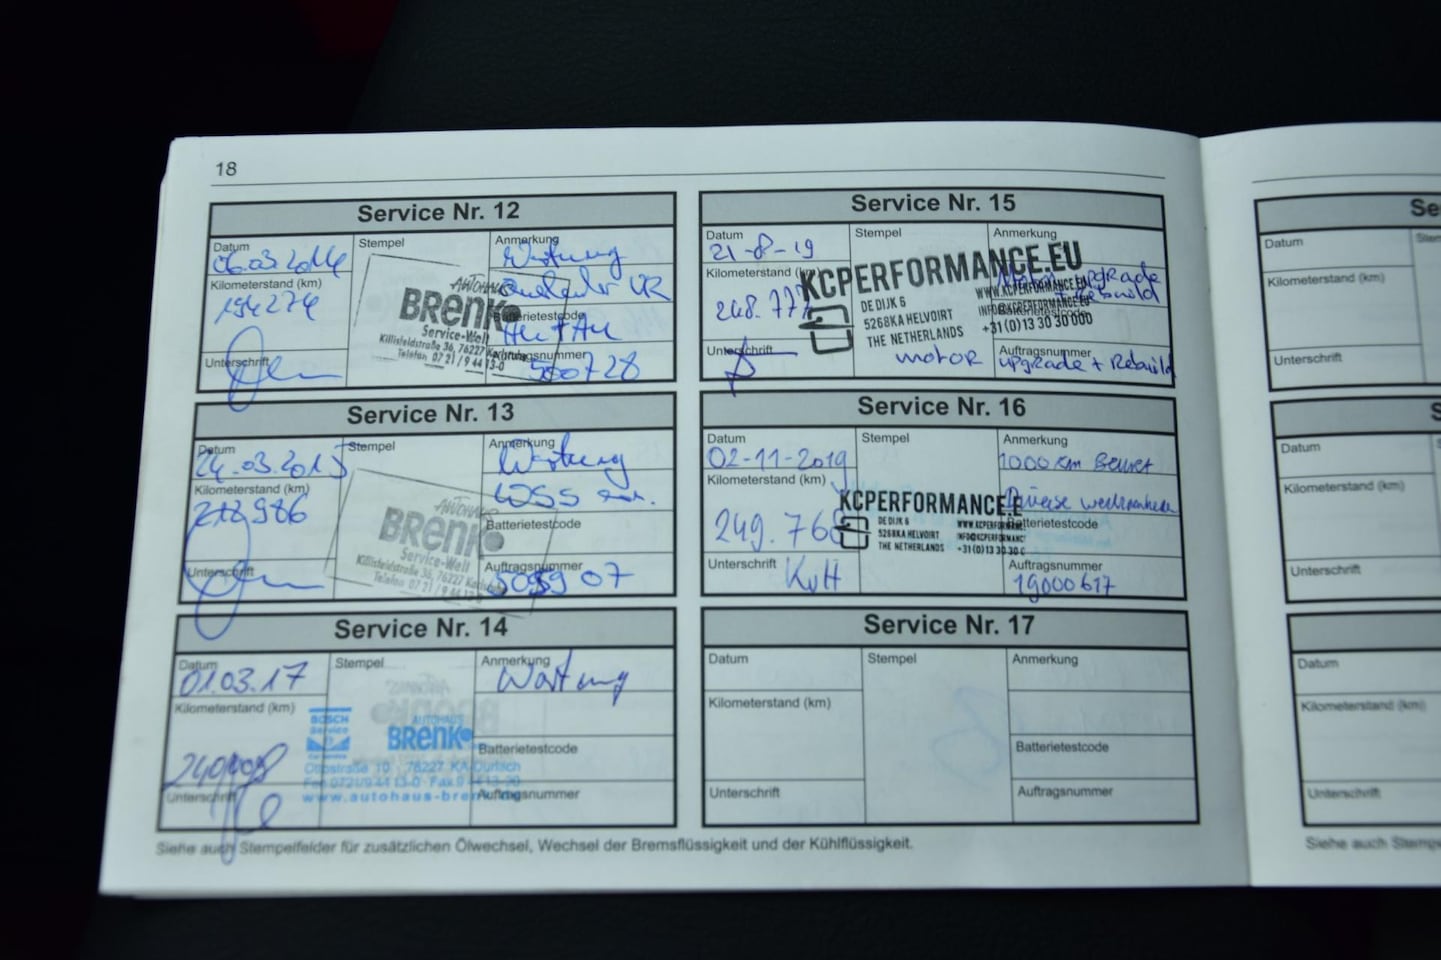 18
Service Nr. 12
Datum
06.03.2014
Kilometerstand (km)
194274
Unterschrift
Stempel
AUTOHAUS
BRENK
Service-Welt
Killisfeldstraße 36, 76227 Karlsruhe
Telefon 07 21 / 9 44 13-0
Anmerkung
Wartung
Batterietestcode
Auftragsnummer
500728
Service Nr. 13
Datum
24.03.2015
Kilometerstand (km)
212986
Unterschrift
Stempel
AUTOHAUS
BRENK
Service-Welt
Killisfeldstraße 36, 76227 Karlsruhe
Telefon 07 21 / 9 44 13-0
Anmerkung
Wartung
Batterietestcode
Auftragsnummer
509907
Service Nr. 14
Datum
01.03.17
Kilometerstand (km)
Unterschrift
Stempel
BOSCH
Service
AUTOHAUS
BRENK
Ottostraße 10 · 76227 KA-Durlach
www.autohaus-brenk
Anmerkung
Wartung
Batterietestcode
Auftragsnummer
Service Nr. 15
Datum
21-8-19
Kilometerstand (km)
248.777
Unterschrift
Stempel
KCPERFORMANCE.EU
DE DIJK 6
5268KA HELVOIRT
THE NETHERLANDS
WWW.KCPERFORMANCE.EU
INFO@KCPERFORMANCE.EU
+31(0)13 30 30 000
motor
Anmerkung
Motor upgrade
+ Rebuild
Batterietestcode
Auftragsnummer
upgrade + Rebuild
Service Nr. 16
Datum
02-11-2019
Kilometerstand (km)
249.768
Unterschrift
KvH
Stempel
KCPERFORMANCE.E
DE DIJK 6
5268KA HELVOIRT
THE NETHERLANDS
WWW.KCPERFORMANC
INFO@KCPERFORMANC
+31(0)13 30 30 0
Anmerkung
1000 km Beurt
Diverse
Batterietestcode
Auftragsnummer
19000617
Service Nr. 17
Datum
Kilometerstand (km)
Unterschrift
Stempel
Anmerkung
Batterietestcode
Auftragsnummer
Siehe auch Stempelfelder für zusätzlichen Ölwechsel, Wechsel der Bremsflüssigkeit und der Kühlflüssigkeit.
Se
Datum
Stem
Kilometerstand (km)
Unterschrift
S
Datum
Kilometerstand (km)
Unterschrift
Datum
Kilometerstand (km)
Unterschrift
Siehe auch Stempe